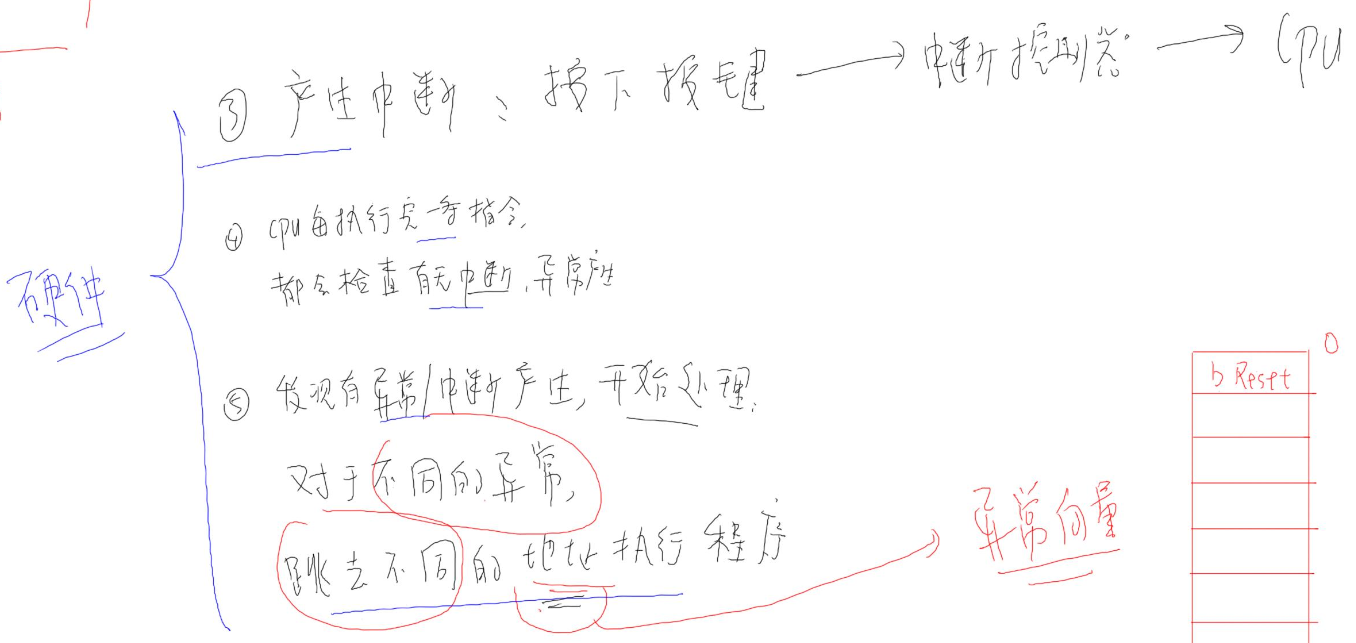 ③ 产生中断、按下按键 → 中断控制器 → CPU
④ CPU每执行完一条指令,
都会检查有无中断,异常产生
硬件
⑤ 发现有异常/中断产生,开始处理.
对于不同的异常,
跳去不同的地址执行程序
异常向量
0
b Reset